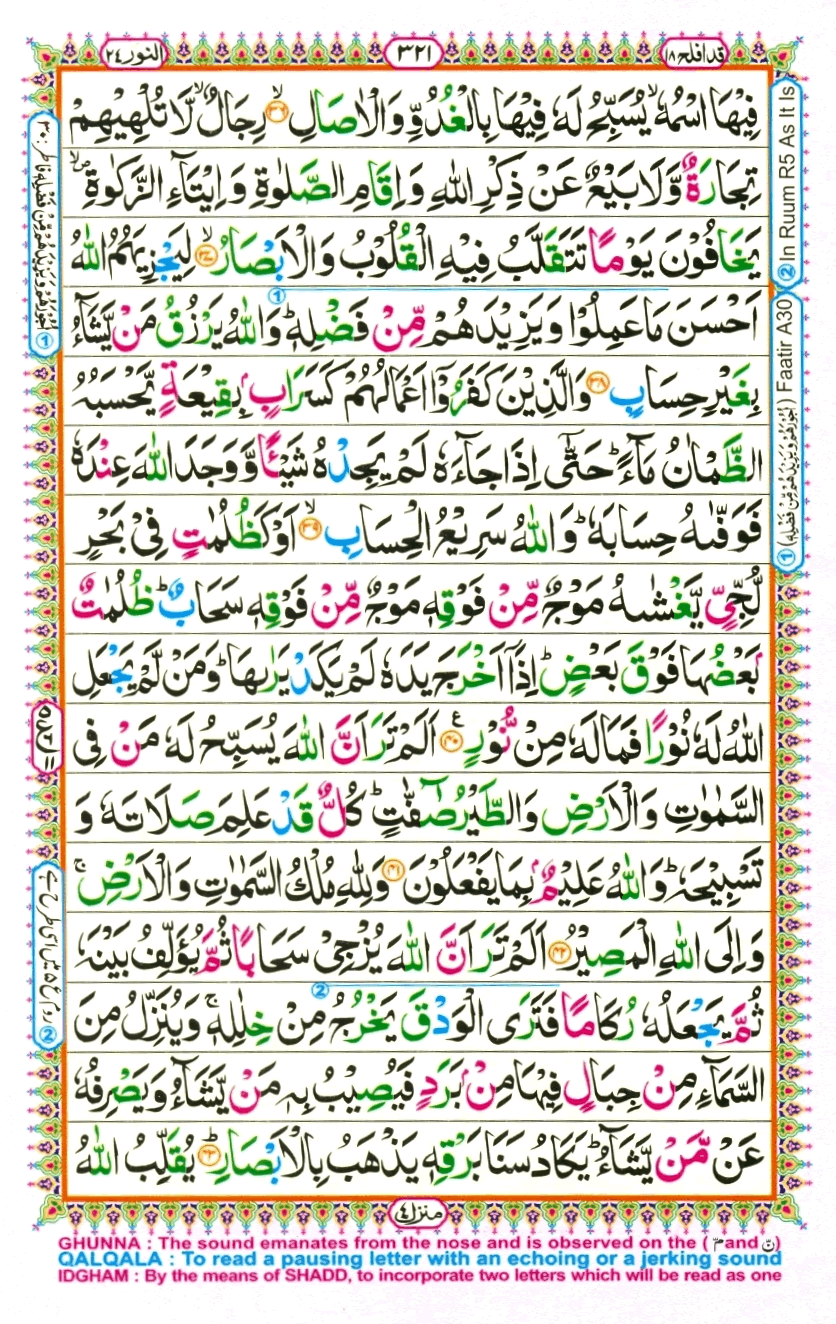 قد افلح ١٨
٣٢١
النور ٢٤
فِيْهَا اسْمُهٗ ۙ يُسَبِّحُ لَهٗ فِيْهَا بِالْغُدُوِّ وَالْاٰصَالِ ۙ﴿۳۶﴾ رِجَالٌ ۙ لَّا تُلْهِيْهِمْ
تِجَارَةٌ وَّلَا بَيْعٌ عَنْ ذِكْرِ اللّٰهِ وَاِقَامِ الصَّلٰوةِ وَاِيْتَآءِ الزَّكٰوةِ ۪ۙ
يَخَافُوْنَ يَوْمًا تَتَقَلَّبُ فِيْهِ الْقُلُوْبُ وَالْاَبْصَارُ ۙ﴿۳۷﴾ لِيَجْزِيَهُمُ اللّٰهُ
اَحْسَنَ مَا عَمِلُوْا وَيَزِيْدَهُمْ مِّنْ فَضْلِهٖ ؕ وَاللّٰهُ يَرْزُقُ مَنْ يَّشَآءُ
بِغَيْرِ حِسَابٍ ﴿۳۸﴾ وَالَّذِيْنَ كَفَرُوْۤا اَعْمَالُهُمْ كَسَرَابٍۭ بِقِيْعَةٍ يَّحْسَبُهُ
الظَّمْاٰنُ مَآءً ؕ حَتّٰۤى اِذَا جَآءَهٗ لَمْ يَجِدْهُ شَيْـًٔا وَّوَجَدَ اللّٰهَ عِنْدَهٗ
فَوَفّٰىهُ حِسَابَهٗ ؕ وَاللّٰهُ سَرِيْعُ الْحِسَابِ ۙ﴿۳۹﴾ اَوْ كَظُلُمٰتٍ فِيْ بَحْرٍ
لُّجِّيٍّ يَّغْشٰىهُ مَوْجٌ مِّنْ فَوْقِهٖ مَوْجٌ مِّنْ فَوْقِهٖ سَحَابٌ ؕ ظُلُمٰتٌۢ
بَعْضُهَا فَوْقَ بَعْضٍ ؕ اِذَاۤ اَخْرَجَ يَدَهٗ لَمْ يَكَدْ يَرٰىهَا ؕ وَمَنْ لَّمْ يَجْعَلِ
اللّٰهُ لَهٗ نُوْرًا فَمَا لَهٗ مِنْ نُّوْرٍ ﴿۴۰﴾ اَلَمْ تَرَ اَنَّ اللّٰهَ يُسَبِّحُ لَهٗ مَنْ فِي
السَّمٰوٰتِ وَالْاَرْضِ وَالطَّيْرُ صٰٓفّٰتٍ ؕ كُلٌّ قَدْ عَلِمَ صَلَاتَهٗ وَ
تَسْبِيْحَهٗ ؕ وَاللّٰهُ عَلِيْمٌۢ بِمَا يَفْعَلُوْنَ ﴿۴۱﴾ وَلِلّٰهِ مُلْكُ السَّمٰوٰتِ وَالْاَرْضِ ۚ
وَاِلَى اللّٰهِ الْمَصِيْرُ ﴿۴۲﴾ اَلَمْ تَرَ اَنَّ اللّٰهَ يُزْجِيْ سَحَابًا ثُمَّ يُؤَلِّفُ بَيْنَهٗ
ثُمَّ يَجْعَلُهٗ رُكَامًا فَتَرَى الْوَدْقَ يَخْرُجُ مِنْ خِلٰلِهٖ ۚ وَيُنَزِّلُ مِنَ
السَّمَآءِ مِنْ جِبَالٍ فِيْهَا مِنْۢ بَرَدٍ فَيُصِيْبُ بِهٖ مَنْ يَّشَآءُ وَيَصْرِفُهٗ
عَنْ مَّنْ يَّشَآءُ ؕ يَكَادُ سَنَا بَرْقِهٖ يَذْهَبُ بِالْاَبْصَارِ ؕ﴿۴۳﴾ يُقَلِّبُ اللّٰهُ
② In Ruum R5 As It Is
① (اُجُوْرَهُمْ وَيَزِيْدَهُمْ مِّنْ فَضْلِهٖ) Faatir A30
منزل ٤
GHUNNA : The sound emanates from the nose and is observed on the ( مّ and نّ)
QALQALA : To read a pausing letter with an echoing or a jerking sound
IDGHAM : By the means of SHADD, to incorporate two letters which will be read as one